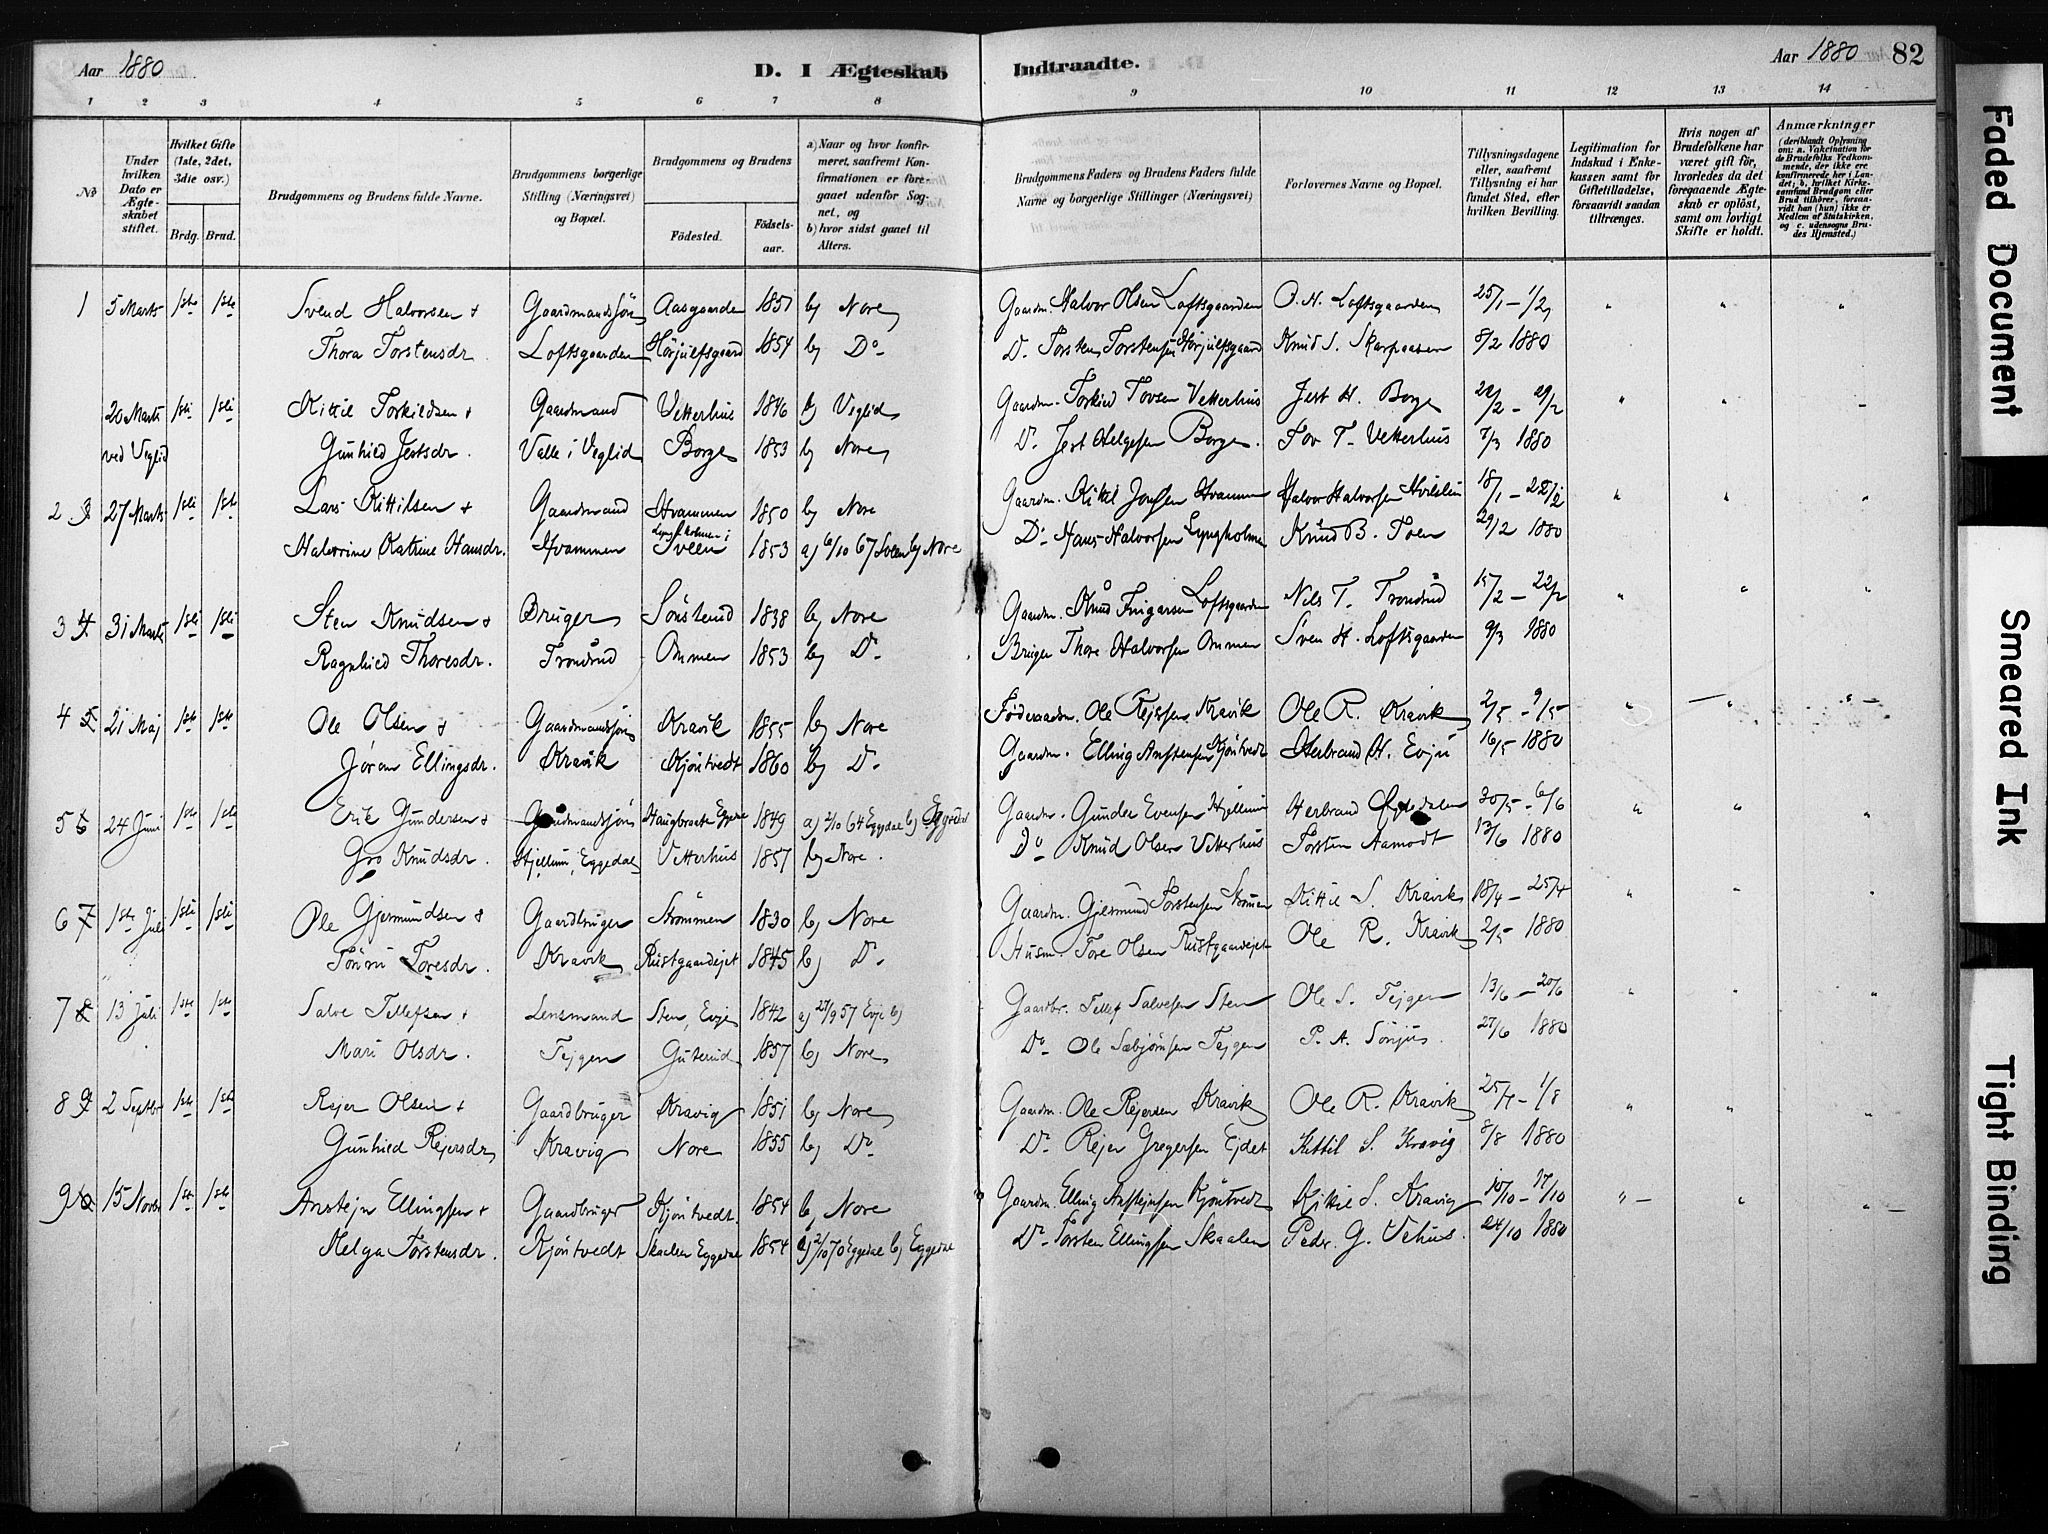 Aar 1880
D. I Ægteskab Indtraadte.
Aar 1880 82
1 2 3 4 5 6 7 8 9 10 11 12 13 14
No
Under hvilken Dato er Ægteskabet stiftet.
Hvilket Gifte (1ste, 2det, 3die osv.)
Brdg. Brud.
Brudgommens og Brudens fulde Navne.
Brudgommens borgerlige Stilling (Næringsvei) og Bopæl.
Brudgommens og Brudens
Födested. Födsels-aar.
a) Naar og hvor konfirmeret, saafremt Konfirmationen er foregaaet udenfor Sognet, og
b) hvor sidst gaaet til Alters.
Brudgommens Faders og Brudens Faders fulde Navne og borgerlige Stillinger (Næringsvei)
Forlovernes Navne og Bopæl.
Tillysningsdagene eller, saafremt Tillysning ei har fundet Sted, efter hvilken Bevilling.
Legitimation for Indskud i Enkekassen samt for Giftetilladelse, forsaavidt saadan tiltrænges.
Hvis nogen af Brudefolkene har været gift för, hvorledes da det foregaaende Ægteskab er oplöst, samt om lovligt Skifte er holdt.
Anmærkninger (deriblandt Oplysning om: a. Vakcination for de Brudefolks Vedkommende, der ikke ere konfirmerede her i Landet; b. hvilket Kirkesamfund Brudgom eller Brud tilhörer, forsaavidt han (hun) ikke er Medlem af Statskirken, og c. udensogns Brudes Hjemsted.)
1 5 Marts 1ste 1ste Svend Halvorsen & Gaardmandssön Aasgaarden 1851 b) Nore Gaardm. Halvor Olsen Loftsgaarden O. H. Loftsgaarden 25/1 – 1/2
Thora Torstensdr. Loftsgaarden Hörjulfsgaard 1854 b) Do Do Torsten Torstensen Hörjulfsgaard Knud S. Skarpaasen 8/2 1880
20 Marts 1ste 1ste Kittil Torkildsen & Gaardmand Vetterhus 1846 b) Veglid Gaardm. Torkild Tovsen Vetterhus Jest H. Borge 22/2 – 29/2
ved Veglid Gunhild Jestsdr. Valle i Veglid Borge 1853 b) Nore Do Jest Helgesen Borge. Tov T. Vetterhus 7/3 1880
2 3 27 Marts 1ste 1ste Lars Kittilsen & Gaardmand Hvammen 1850 b) Nore Gaardm. Kittil Jonsen Hvammen Halvor Halvorsen 18/1 – 22/2
Halvorine Katrine Hansdr. Hvammen Lyngholmen i Sveen 1853 a) 6/10 67 Sveen b) Nore Do Hans Halvorsen Lyngholmen Knud B. Toen 29/2 1880
3 4 31 Marts 1ste 1ste Sten Knudsen & Bruger Sönsterud 1838 b) Nore Gaardm. Knud Fingarsen Loftsgaarden Nils T. Trondrud 15/2 – 22/2
Ragnhild Thoresdr. Trondrud Ommen 1853 b) Do Bruger Thore Halvorsen Ommen Sven H. Loftsgaarden 9/3 1880
4 5 21 Maj 1ste 1ste Ole Olsen & Gaardmandssön Kravik 1855 b) Nore Föderaadm. Ole Rejersen Kravik Ole R. Kravik 2/5 – 9/5
Jöran Ellingsdr. Kravik Kjöntvedt 1860 b) Do Gaardm. Elling Anstensen Kjöntvedt Herbrand H. Evju 16/5 1880
5 6 24 Juni 1ste 1ste Erik Gundersen & Gaardmandssön Haugbraate Eggedal 1849 a) 2/10 64 Eggedal b) Eggedal Gaardm. Gunder Evensen Hjellum Herbrand 30/5 – 6/6
Gro Knudsdr. Hjellum, Eggedal Vetterhus 1857 b) Nore. Do Knud Olsen Vetterhus Torsten Aamodt 13/6 1880
6 7 1ste Juli 1ste 1ste Ole Gjermundsen & Gaardbruger Strömmen 1830 b) Nore Gaardm. Gjermund Torstensen Strömmen Kittil S. Kravik 18/4 – 25/4
Torun Toresdr. Kravik Rustgaardejet 1845 b) Do Husm. Tore Olsen Rustgaardejet Ole R. Kravik 2/5 1880
7 8 13 Juli 1ste 1ste Salve Tellefsen & Lensmand Sten, Evje 1842 a) 27/9 57 Evje b) Gaardbr. Tellef Salvesen Sten Ole S. Tejgen 13/6 – 20/6
Mari Olsdr. Tejgen Guterud 1857 b) Nore Do Ole Sæbjörnsen Tejgen P. A. Sönju 27/6 1880
8 9 2 Septbr 1ste 1ste Rejer Olsen & Gaardbruger Kravig 1851 b) Nore Gaardm. Ole Rejersen Kravik Ole R. Kravik 25/7 – 1/8
Gunhild Rejersdr. Kravig Nore 1855 b) Do Do Rejer Gregersen Ejdet Kittil S. Kravig 8/8 1880
9 10 15 Novbr 1ste 1ste Anstejn Ellingsen & Gaardbruger Kjöntvedt 1854 b) Nore Gaardm. Elling Anstejnsen Kjöntvedt Kittil S. Kravig 10/10 – 17/10
Helga Torstensdr. Kjöntvedt Skaalen Eggedal 1854 a) 2/10 70 Eggedal b) Eggedal Do Torsten Ellingsen Skaalen Pedr. G. Vehus. 24/10 1880
Faded Document
Smeared Ink
Tight Binding